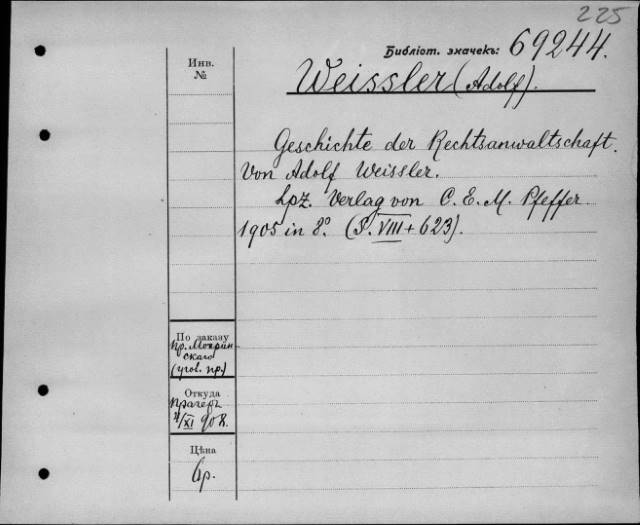 225
Библіот. значекъ: 69244.
Weissler (Adolf).
Инв.
№
Geschichte der Rechtsanwaltschaft.
Von Adolf Weissler.
Lpz. Verlag von C. E. M. Pfeffer
1905 in 8º. (S. VIII + 623).
По заказу
пр. Мокрин-
скаго
(угов. пр.)
Откуда
Прагеръ
4/XI 908.
Цѣна
6р.